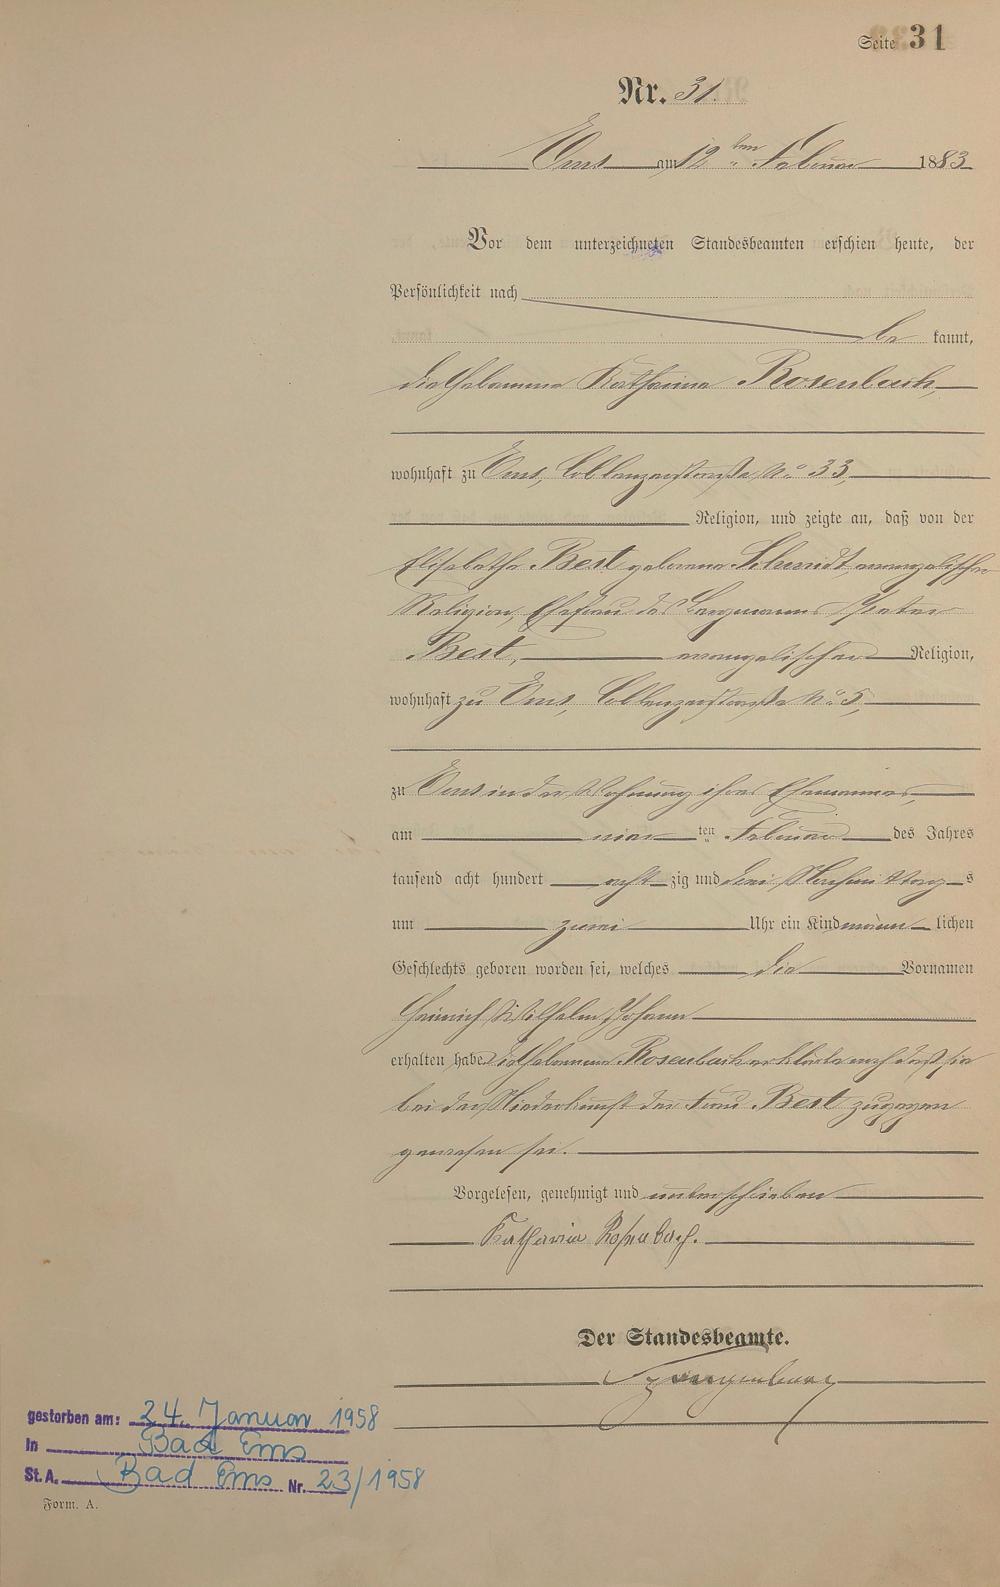 Seite 31
Nr. 31.
Ems am 12ten Februar 1883
Vor dem unterzeichneten Standesbeamten erschien heute, der
Persönlichkeit nach
be kannt,
die Hebamme Katharina Rosenbach,
wohnhaft zu Ems, Coblenzerstraße No. 33,
Religion, und zeigte an, daß von der
Elisabetha Best geborene Schmidt, evangelischer
Religion, Ehefrau des Bergmanns Peter
Best, evangelischer Religion,
wohnhaft zu Ems, Coblenzerstraße No. 5,
zu Ems in der Wohnung ihres Ehemannes,
am ten Februar des Jahres
tausend acht hundert acht zig und drei Nachmittag s
um zwei Uhr ein Kind männ lichen
Geschlechts geboren worden sei, welches die Vornamen
Heinrich Wilhelm Johann
erhalten habe. Die Hebamme Rosenbach erklärte noch daß sie
bei der Niederkunft der Frau Best zugegen
gewesen sei.
Vorgelesen, genehmigt und unterschrieben
Katharina Rosenbach.
Der Standesbeamte.
gestorben am: 24. Januar 1958
In Bad Ems
St. A. Bad Ems Nr. 23/1958
Form. A.